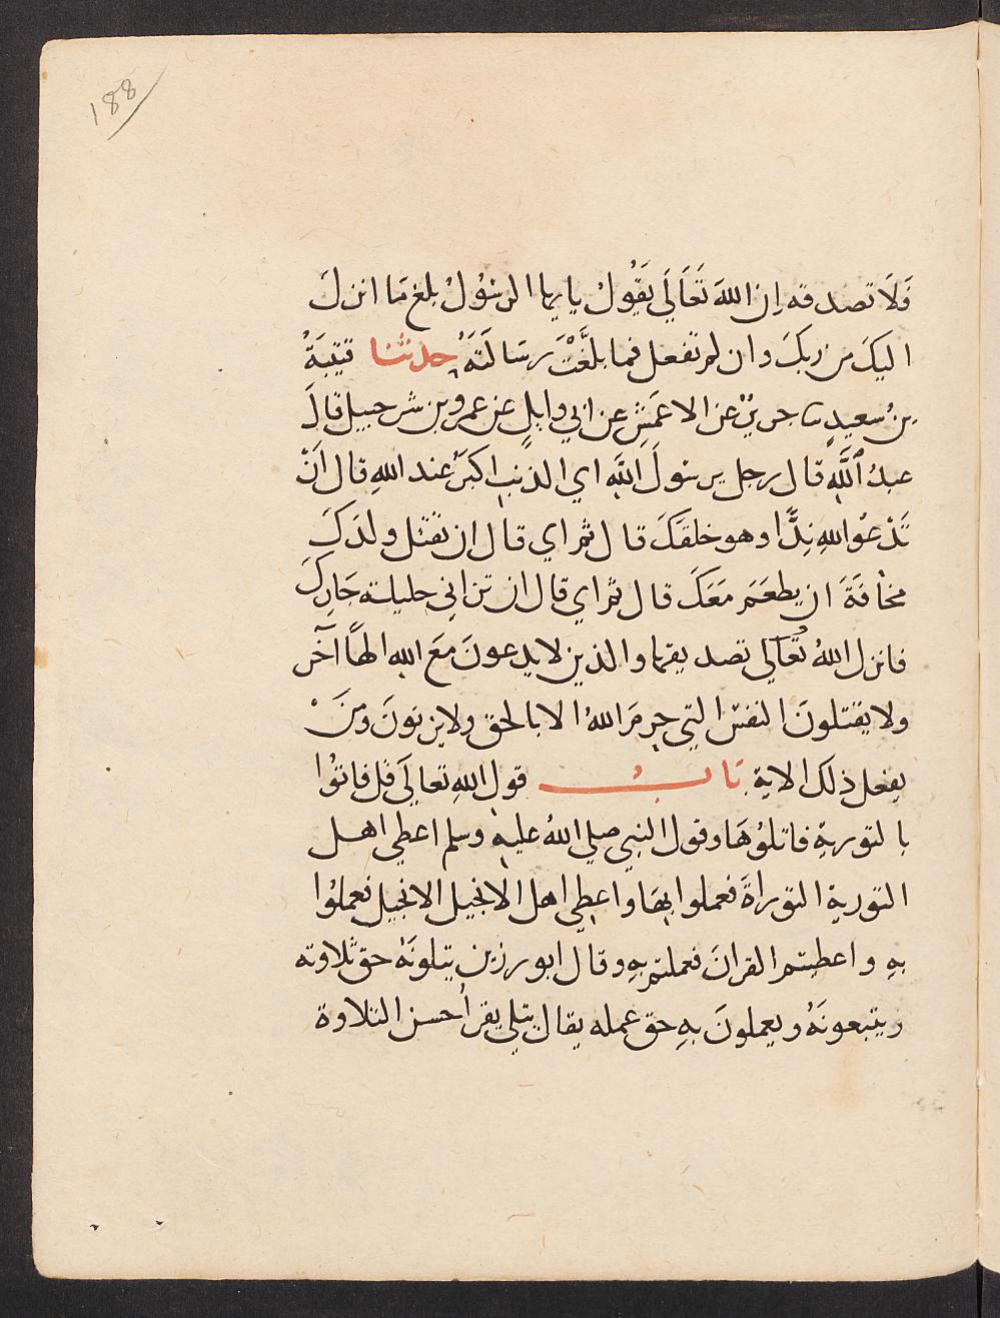 188
فَلَا تصدقه إن اللهَ تَعَالَي يَقُولُ يا ايها الرسُولُ بلغ مَا انزلَ
اليكَ من ربكَ وان لم تفعل فما بلَّغْتَ رسَالَتَهُ حدثنا قتيبَةُ
بنُ سعيدٍ ثنا جريرٌ عن الاعمَشِ عن ابي وايلٍ عن عمرو بن شرحبيل قالَ
عبدُ اللَّهِ قال رجل يرسُولَ اللَّهِ اي الذنبِ اكبرُ عند اللهِ قال اَنْ
تَدْعُوَ اللهِ نِدًّا وهو خلقَكَ قال ثم اي قال ان تقتل ولدَكَ
مخافَةَ ان يطعَمَ مَعَكَ قال ثم اي قال ان تزاني حليلة جَارِكَ
فانزل اللهُ تعَالي تصديقها والذين لا يدعونَ معَ اللهِ الهًا آخر
ولا يقتلونَ النفسَ التي حرمَ اللهُ الا بالحق ولا يزنونَ ومَنْ
يفعل ذلك الاية بَابُ قول اللهِ تعالَي قل فاتُوا
بالتوريةِ فاتلُوهَا وقول النبي صلي اللهُ عليهِ وسلم اعطي اهل
التوريةِ التوراةَ فعملوا بهَا واعطي اهل الانجيل الانجيل فعملُوا
بهِ واعطيتم القرانَ فعملتم بهِ وقال ابو رزين يتلونَهُ حق تلاوته
يتبعونَهُ ويعملونَ بهِ حق عمله يقال يتلي يقرأ حسن التلاوة